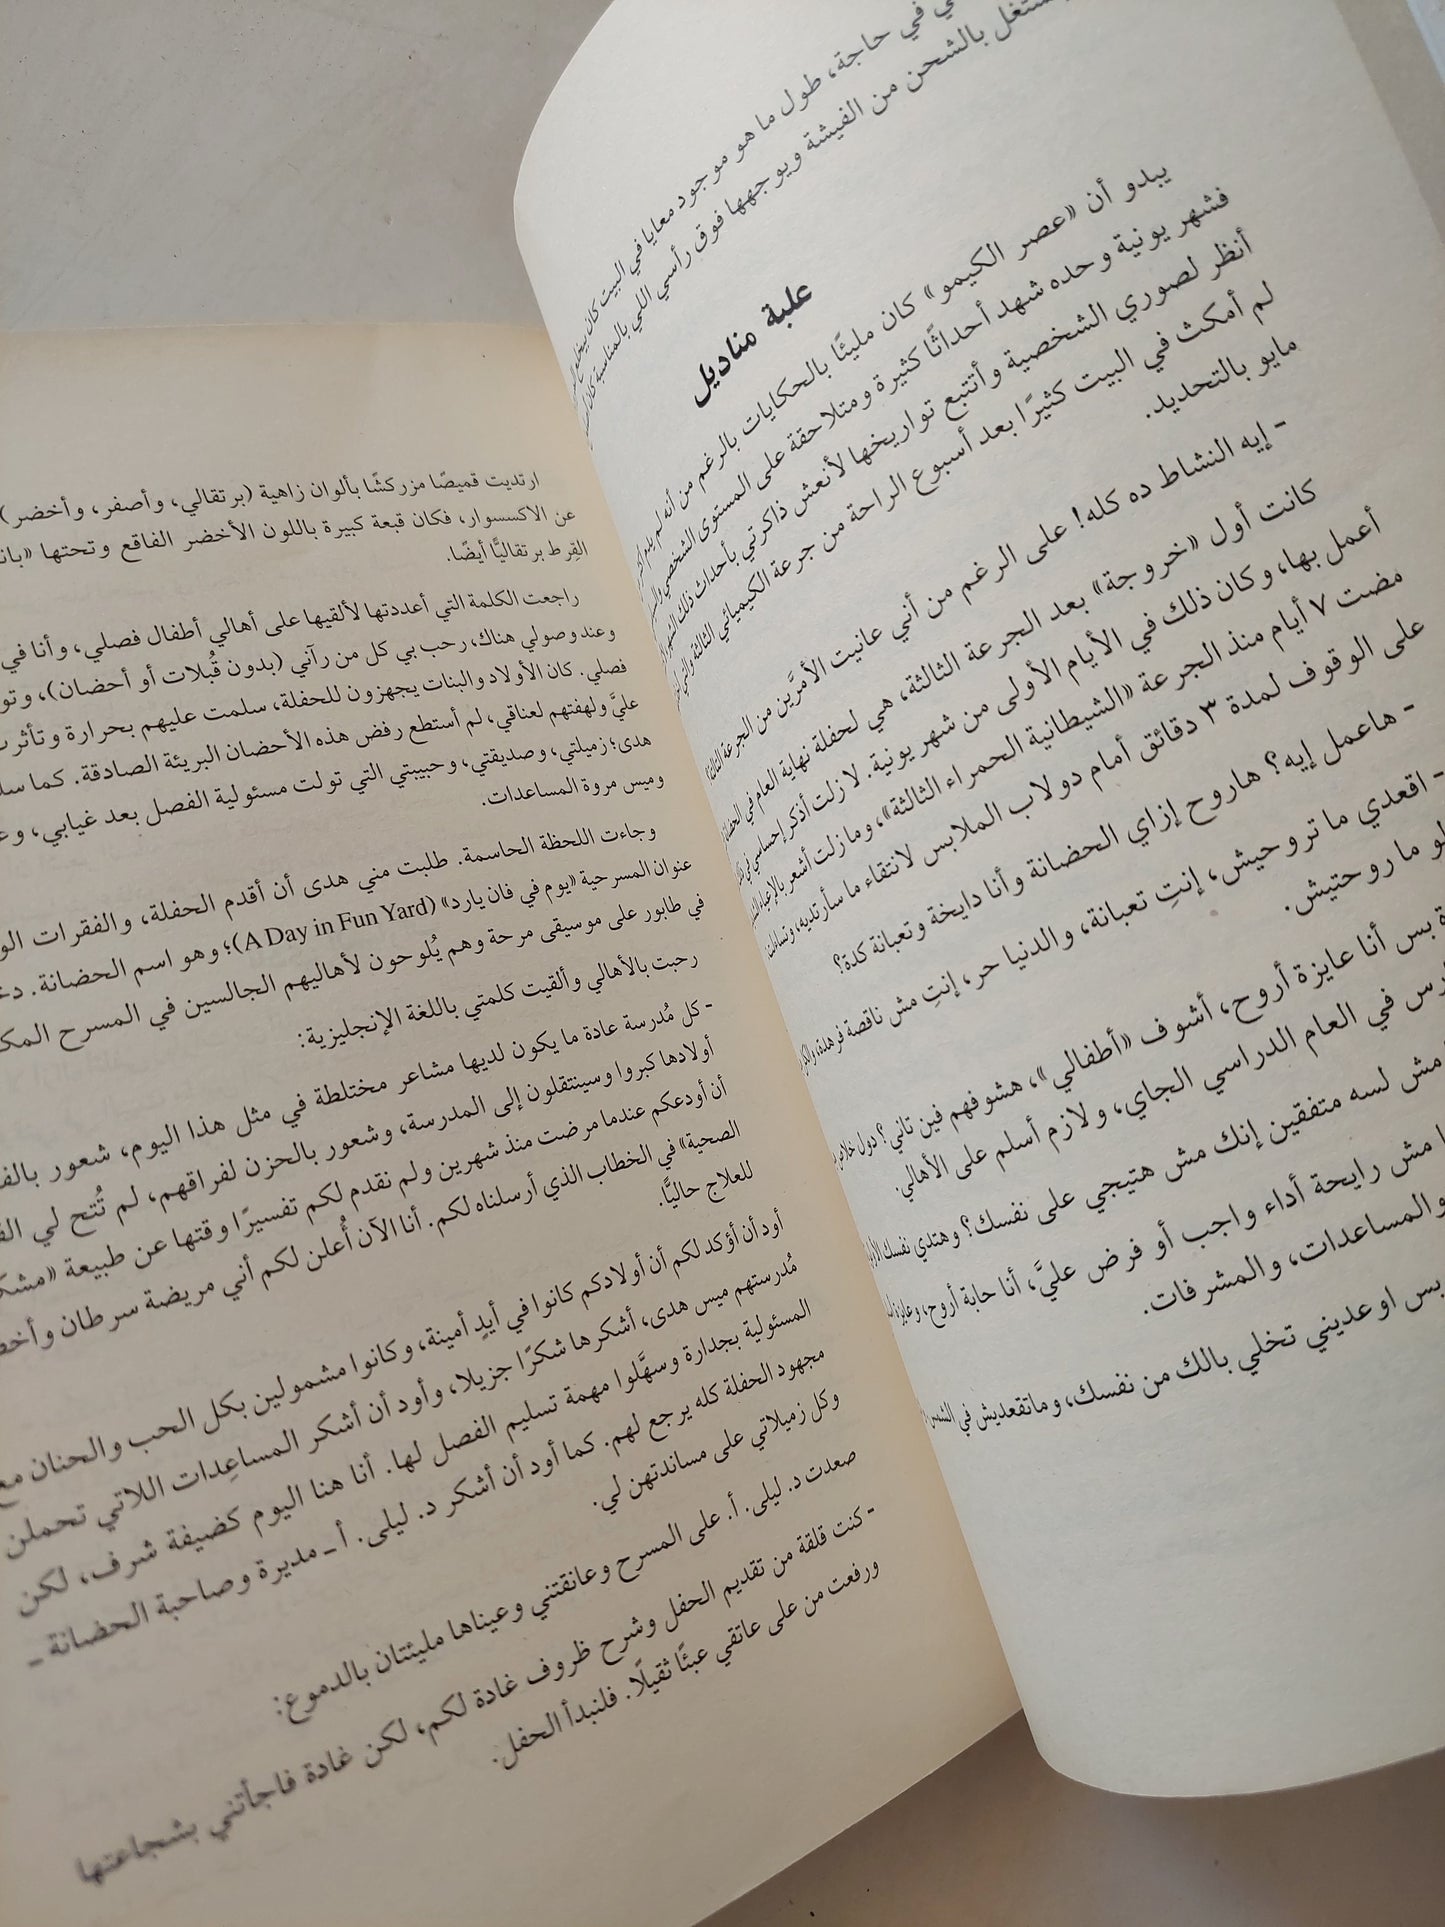 في حاجة، طول ما هو موجود معايا في البيت كان
بالشحن من الفيشة ويوجهها فوق رأسي اللي بالمناسبة
علبة مناديل
يبدو أن «عصر الكيمو» كان مليئًا بالحكايات بالرغم من أنه لم
فشهر يونية وحده شهد أحداثًا كثيرة ومتلاحقة على المستوى الشخصي
أنظر لصوري الشخصية وأتتبع تواريخها لأنعش ذاكرتي بأحداث ذلك الشهر
لم أمكث في البيت كثيرًا بعد أسبوع الراحة من جرعة الكيميائي الثالثة
مايو بالتحديد.
- إيه النشاط ده كله! على الرغم من أنني عانيت الأمرَّين من الجرعة الثالثة
كانت أول «خروجة» بعد الجرعة الثالثة، هي لحفلة نهاية العام في الحضانة
أعمل بها، وكان ذلك في الأيام الأولى من شهر يونية. لا زلت أذكر إحساسي في
مضت ٧ أيام منذ الجرعة «الشيطانية الحمراء الثالثة»، وما زلت أشعر بالإعياء
على الوقوف لمدة ٣ دقائق أمام دولاب الملابس لانتقاء ما سأرتديه، وتساءلت
- هاعمل إيه؟ هاروح إزاي الحضانة وأنا دايخة وتعبانة كدة؟
- اقعدي ما تروحيش، إنتِ تعبانة، والدنيا حر، إنتِ مش ناقصة فرهدة،
لو ما روحتيش.
بس أنا عايزة أروح، أشوف «أطفالي»، هشوفهم فين تاني؟ دول خلاص
في العام الدراسي الجاي، ولازم أسلم على الأهالي.
مش لسه متفقين إنك مش هتيجي على نفسك؟ وهتدي نفسك
مش رايحة أداء واجب أو فرض عليَّ، أنا حابة أروح، وعايزة
والمساعدات، والمشرفات.
بس اوعديني تخلي بالك من نفسك، وماتقعديش في الشمس
ارتديت قميصًا مزركشًا بألوان زاهية (برتقالي، وأصفر، وأخضر)
عن الاكسسوار، فكان قبعة كبيرة باللون الأخضر الفاقع وتحتها
القِرط برتقاليًّا أيضًا.
راجعت الكلمة التي أعددتها لألقيها على أهالي أطفال فصلي، وأنا في
وعند وصولي هناك، رحب بي كل من رآني (بدون قُبلات أو أحضان)،
فصلي. كان الأولاد والبنات يجهزون للحفلة، سلمت عليهم بحرارة وتأثرت
عليَّ ولهفتهم لعناقي، لم أستطع رفض هذه الأحضان البريئة الصادقة. كما
هدى؛ زميلتي، وصديقتي، وحبيبتي التي تولت مسئولية الفصل بعد غيابي،
وميس مروة المساعدات.
وجاءت اللحظة الحاسمة. طلبت مني هدى أن أقدم الحفلة، والفقرات
عنوان المسرحية «يوم في فان يارد» (A Day in Fun Yard)؛ وهو اسم الحضانة.
في طابور على موسيقى مرحة وهم يُلوحون لأهاليهم الجالسين في المسرح
رحبت بالأهالي وألقيت كلمتي باللغة الإنجليزية:
- كل مُدرسة عادة ما يكون لديها مشاعر مختلطة في مثل هذا اليوم، شعور
أولادها كبروا وسينتقلون إلى المدرسة، وشعور بالحزن لفراقهم، لم تُتح لي
أن أودعكم عندما مرضت منذ شهرين ولم نقدم لكم تفسيرًا وقتها عن طبيعة
الصحية» في الخطاب الذي أرسلناه لكم. أنا الآن أُعلن لكم أني مريضة سرطان
للعلاج حاليًّا.
أود أن أؤكد لكم أن أولادكم كانوا في أيدٍ أمينة، وكانوا مشمولين بكل الحب والحنان مع
مُدرستهم ميس هدى، أشكرها شكرًا جزيلا، وأود أن أشكر المساعِدات اللاتي تحملن
المسئولية بجدارة وسهَّلوا مهمة تسليم الفصل لها. أنا هنا اليوم كضيفة شرف، لكن
مجهود الحفلة كله يرجع لهم. كما أود أن أشكر د. ليلى. أ ــ مديرة وصاحبة الحضانة ــ
وكل زميلاتي على مساندتهن لي.
صعدت د. ليلى. أ. على المسرح وعانقتني وعيناها مليئتان بالدموع:
- كنت قلقة من تقديم الحفل وشرح ظروف غادة لكم، لكن غادة فاجأتني بشجاعتها
ورفعت من على عاتقي عبئًا ثقيلًا. فلنبدأ الحفل.